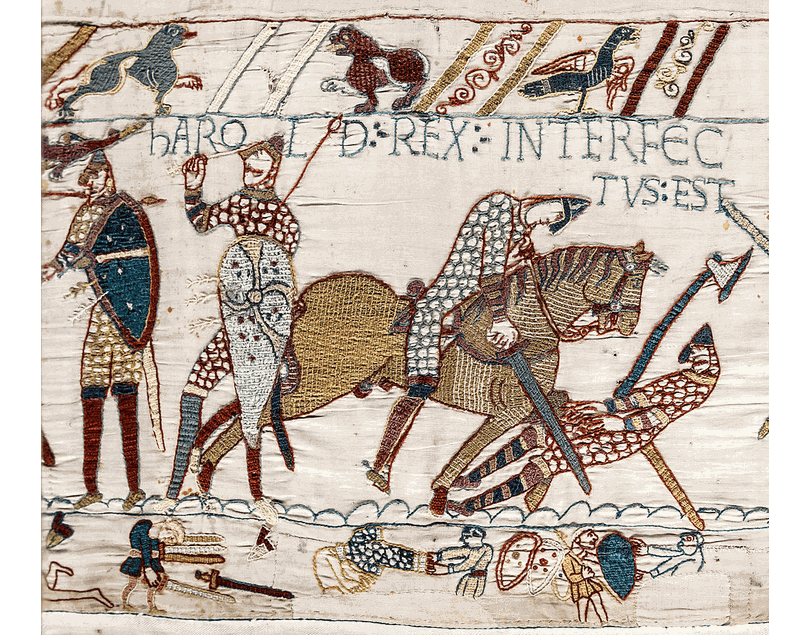 hARO L D : REX : INTERFEC
TVS : EST